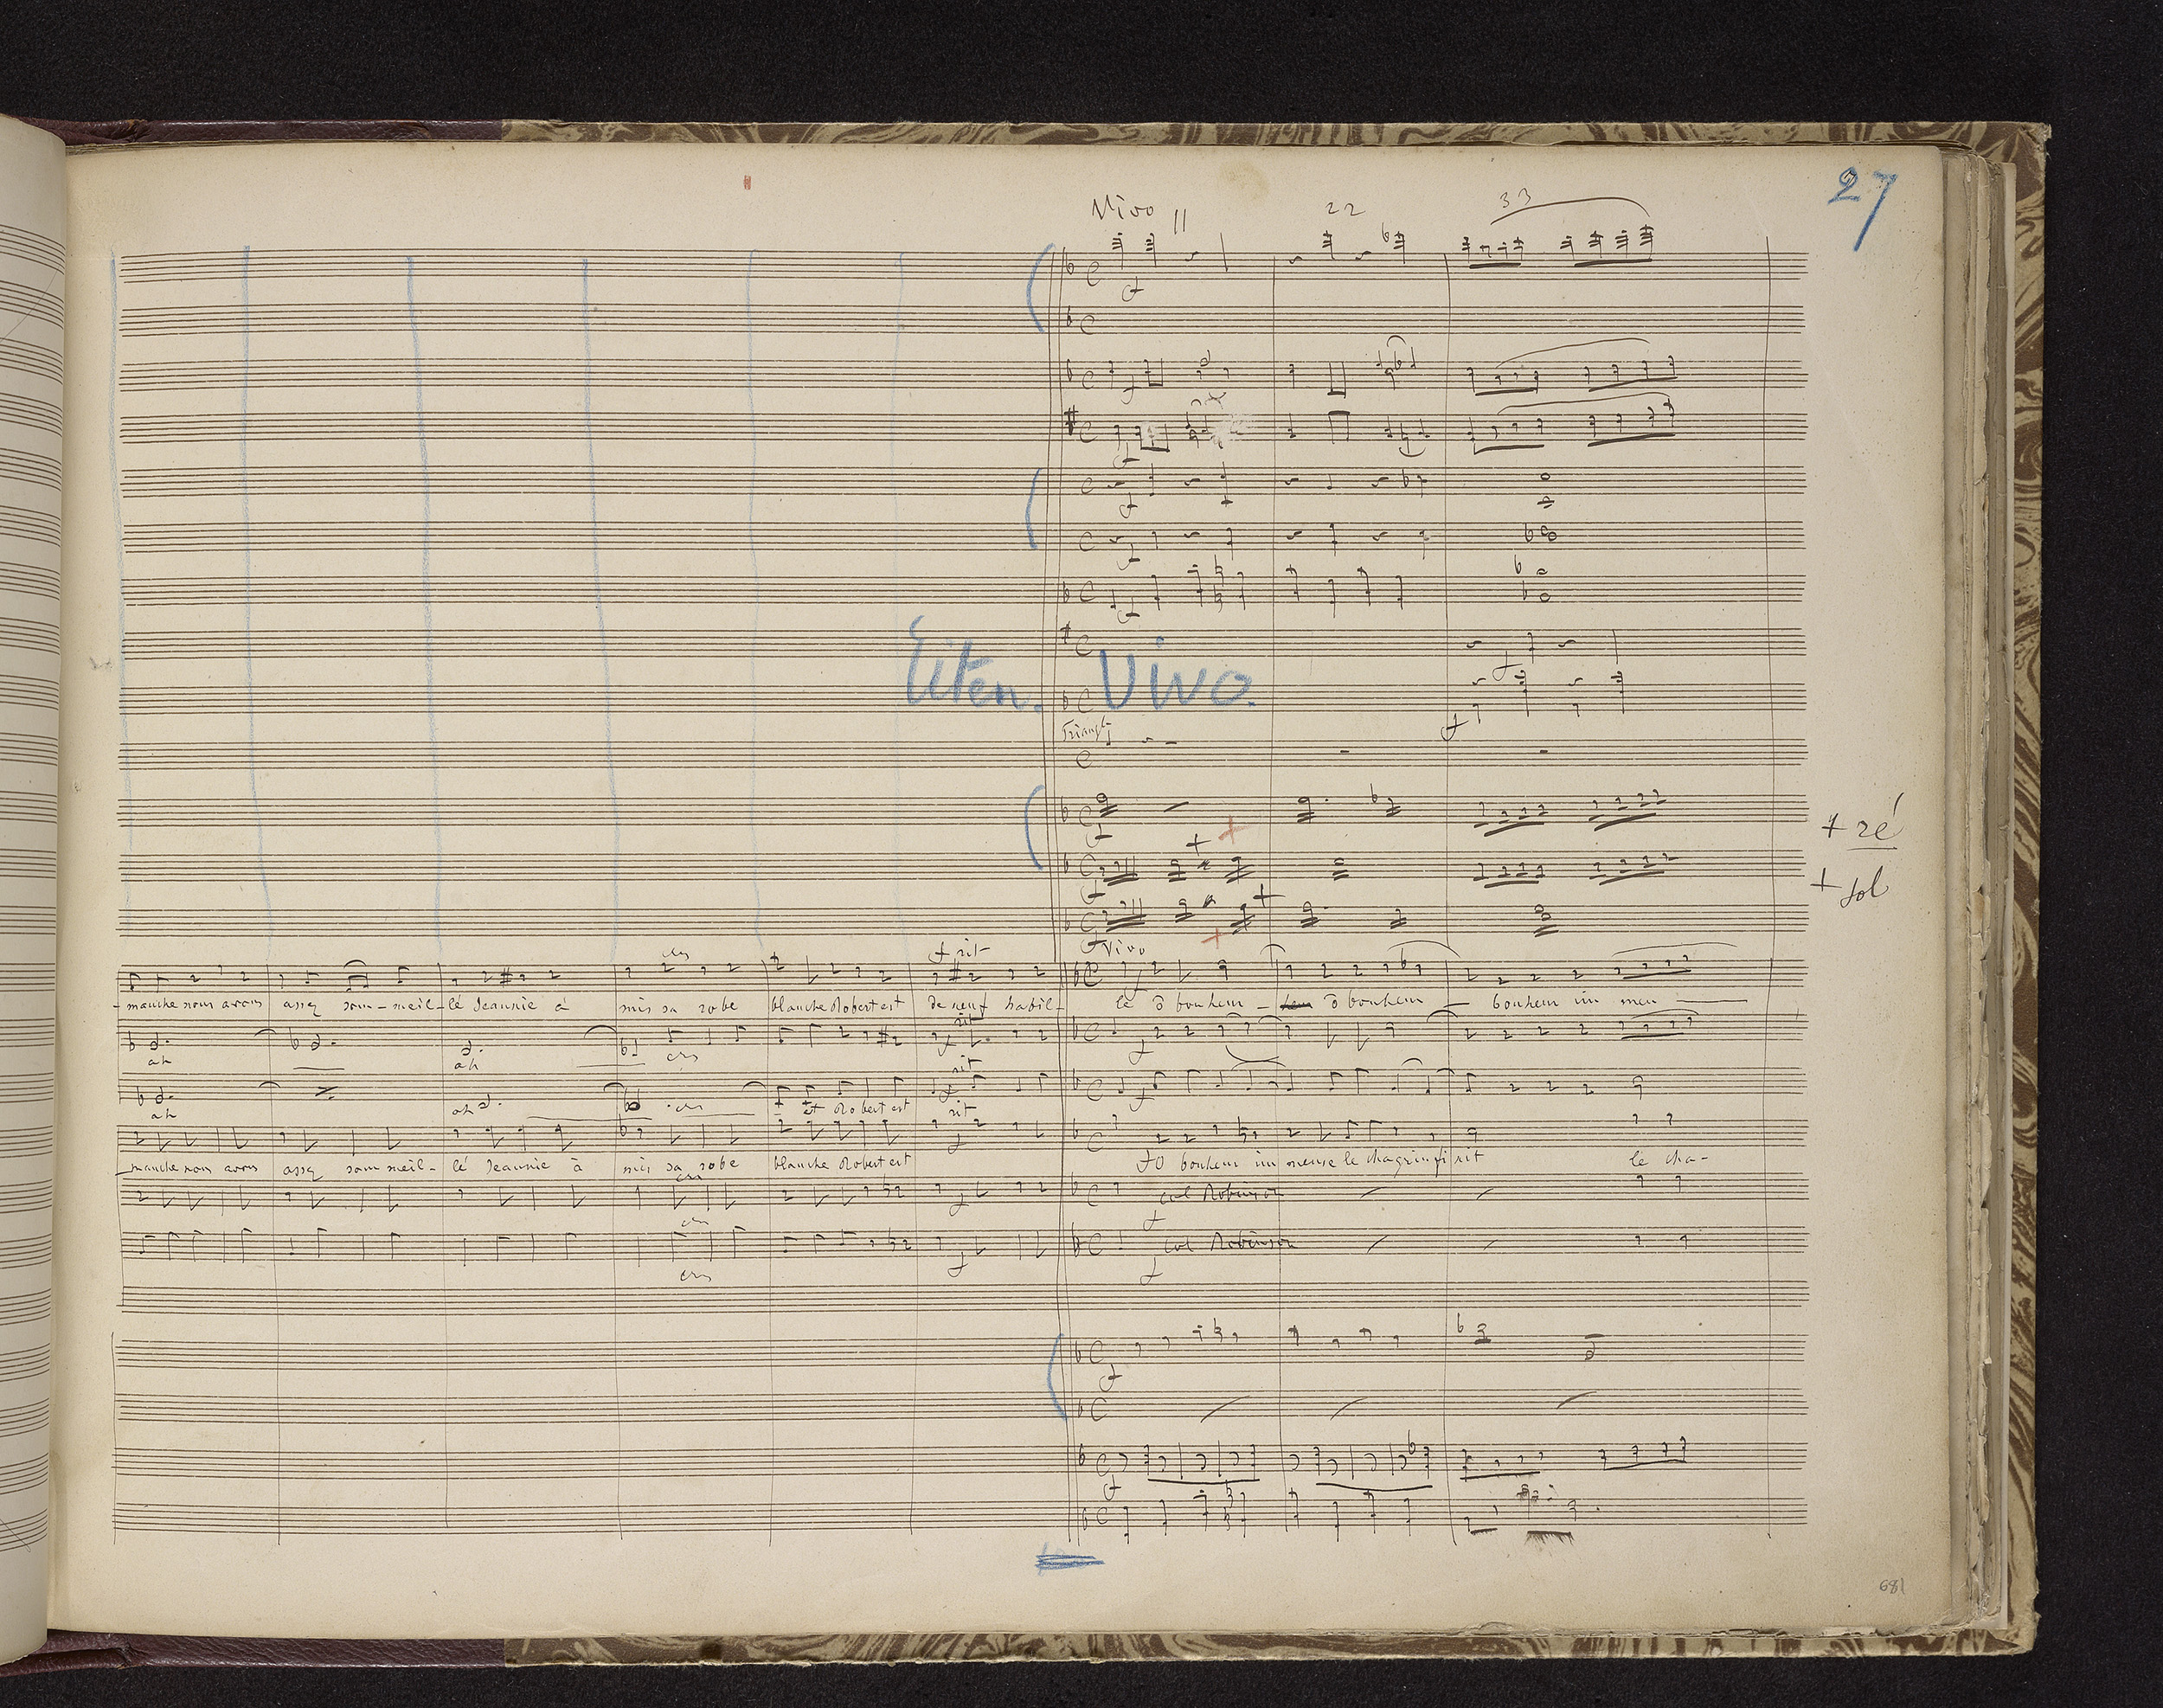 27
Vivo 11 22 33
riten. Vivo.
Triangl
+ ré
+ sol
Vivo
cres
f rit
-manche nous avons assez som-meil-lé Jeannie à mis sa robe blanche Robert est de neuf habil-lé ô bonheur - ô bonheur - bonheur im men
ah ah cres rit
ah ah cres et Robert est rit
rit
-manche nous avons assez sommeil-lé Jeannie à mis sa robe blanche Robert est O bonheur immense le chagrin finit le cha-
cres
col Robinson
cres
col Robinson
cres
681